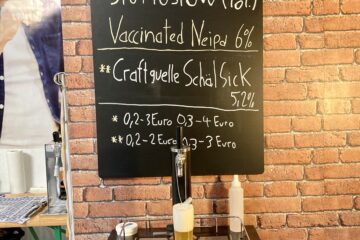 Vaccinated Neipa 6%
** Craftquelle Schäl Sick
5,2%
* 0,2-3Euro 0,3-4 Euro
** 0,2-2 Euro 0,3-3 Euro